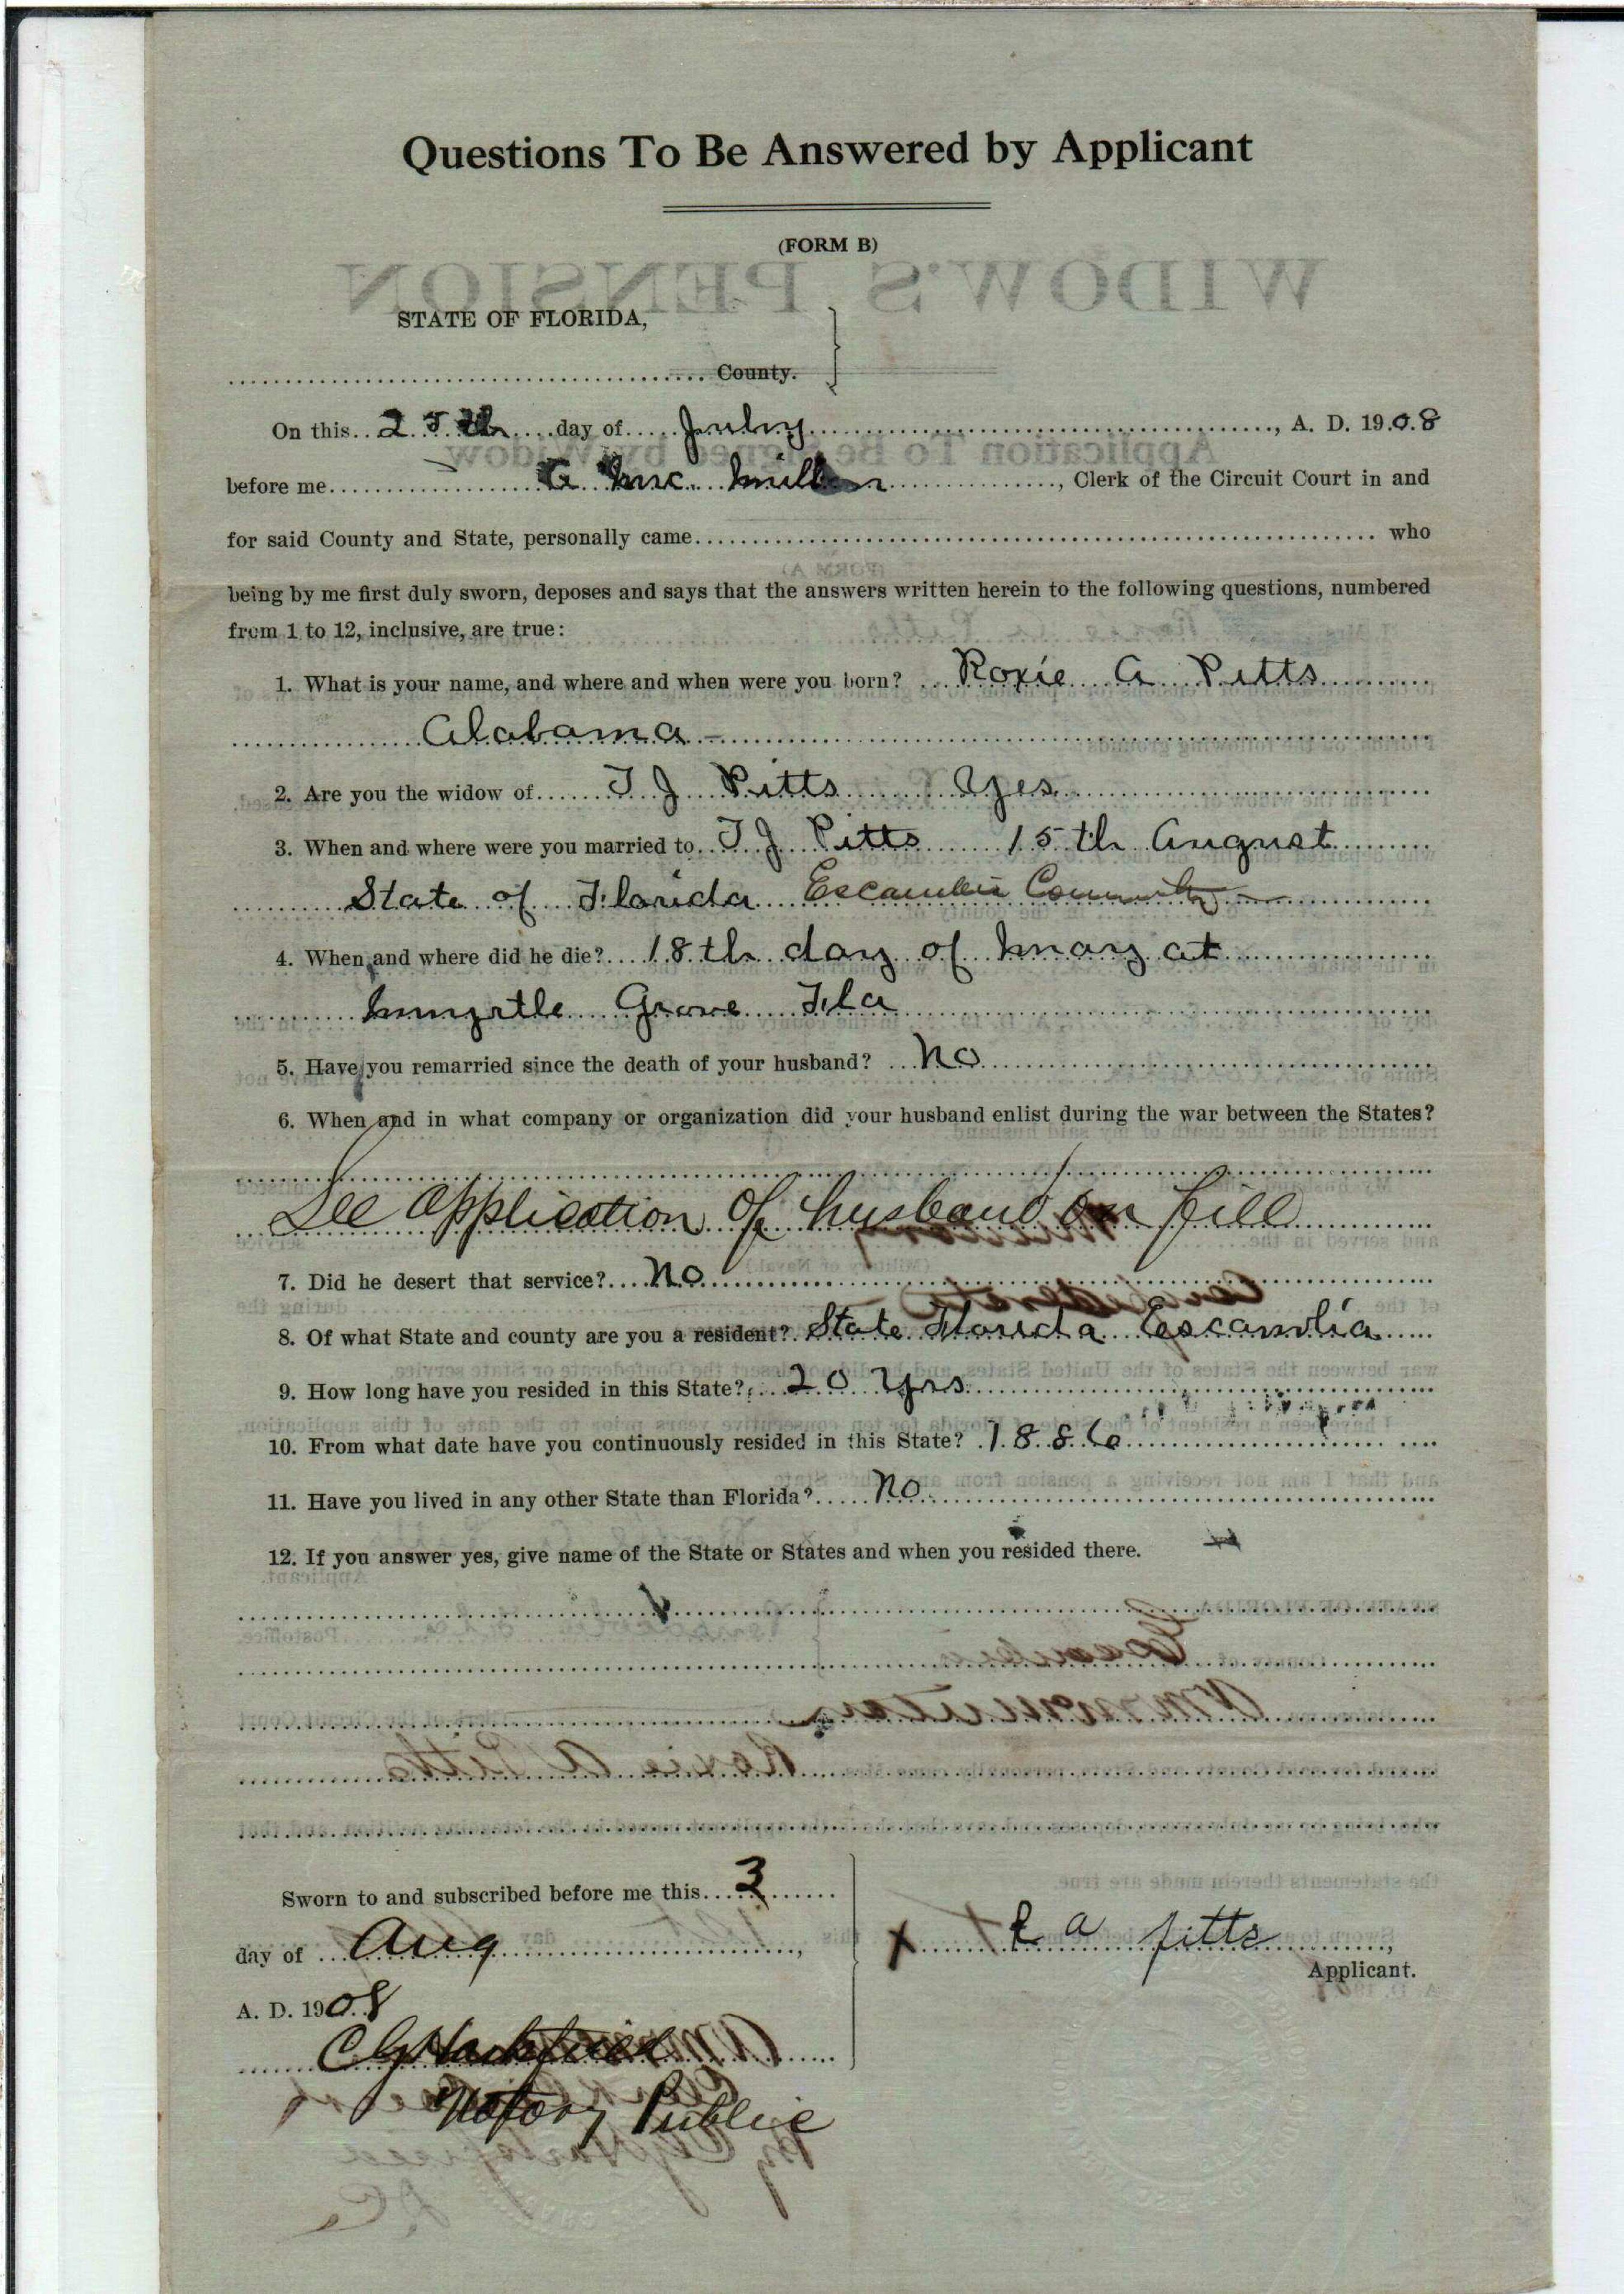 Questions To Be Answered by Applicant
(FORM B)
WIDOW'S PENSION
STATE OF FLORIDA,
County.
On this 25th day of July, A. D. 1908
before me G Mc Millan, Clerk of the Circuit Court in and
for said County and State, personally came who
being by me first duly sworn, deposes and says that the answers written herein to the following questions, numbered
from 1 to 12, inclusive, are true:
1. What is your name, and where and when were you born? Roxie A Pitts
Alabama
2. Are you the widow of T J Pitts Yes
3. When and where were you married to T J Pitts 15th August
State of Florida Escambia County
4. When and where did he die? 18th day of May at
Myrtle Grove Fla
5. Have you remarried since the death of your husband? No
6. When and in what company or organization did your husband enlist during the war between the States?
See application of husband on file
7. Did he desert that service? No
8. Of what State and county are you a resident? State Florida Escambia
9. How long have you resided in this State? 20 Yrs
10. From what date have you continuously resided in this State? 1886
11. Have you lived in any other State than Florida? No
12. If you answer yes, give name of the State or States and when you resided there.
Sworn to and subscribed before me this 3
day of Aug,
A. D. 1908
Notary Public
x R a pitts,
Applicant.